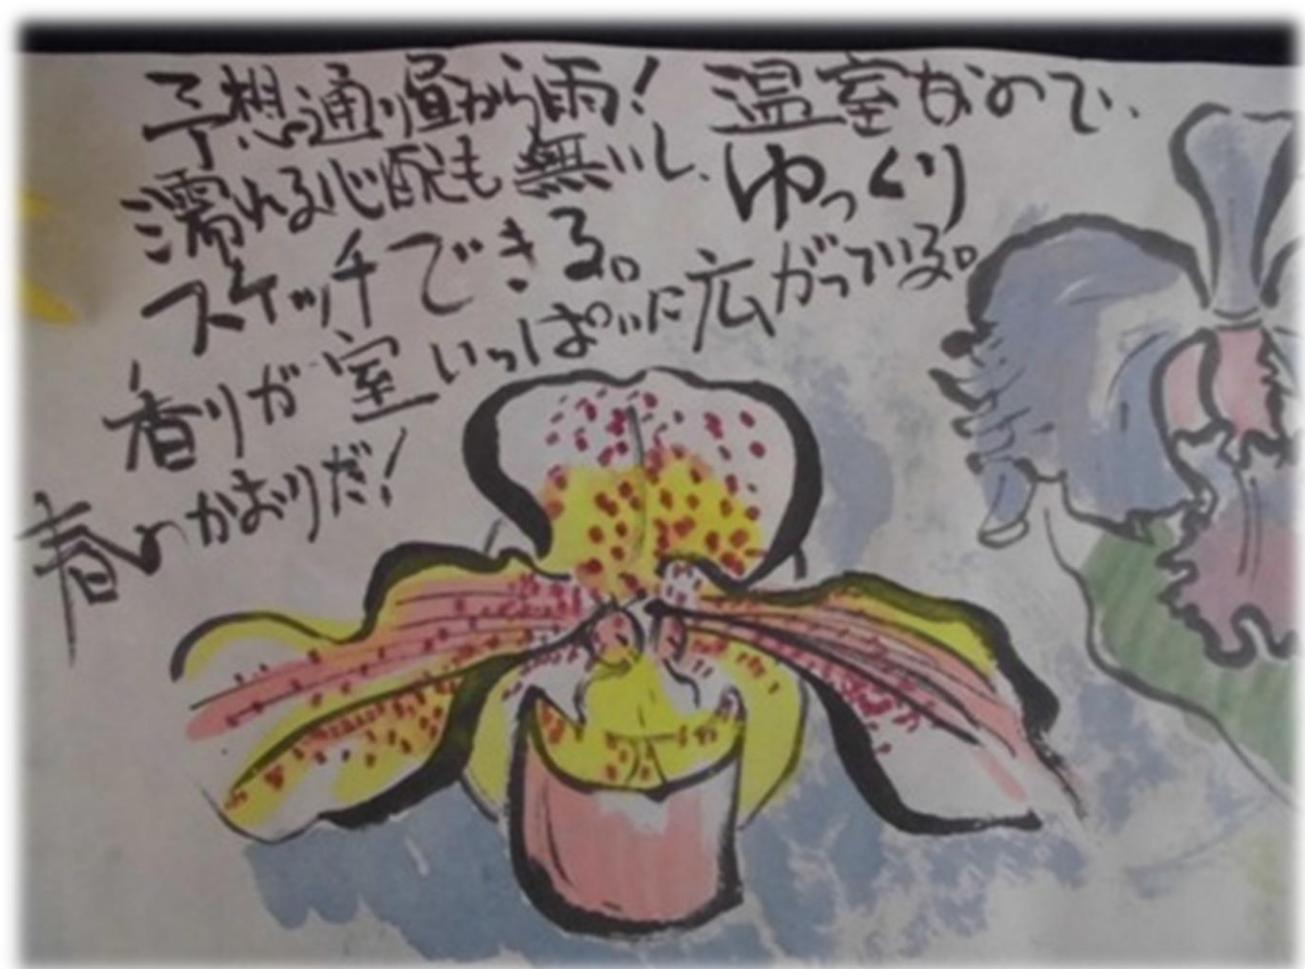 予想通り昼から雨！温室なので、
濡れる心配も無いし、ゆっくり
スケッチできる。
香りが室いっぱいに広がっている。
春のかおりだ！